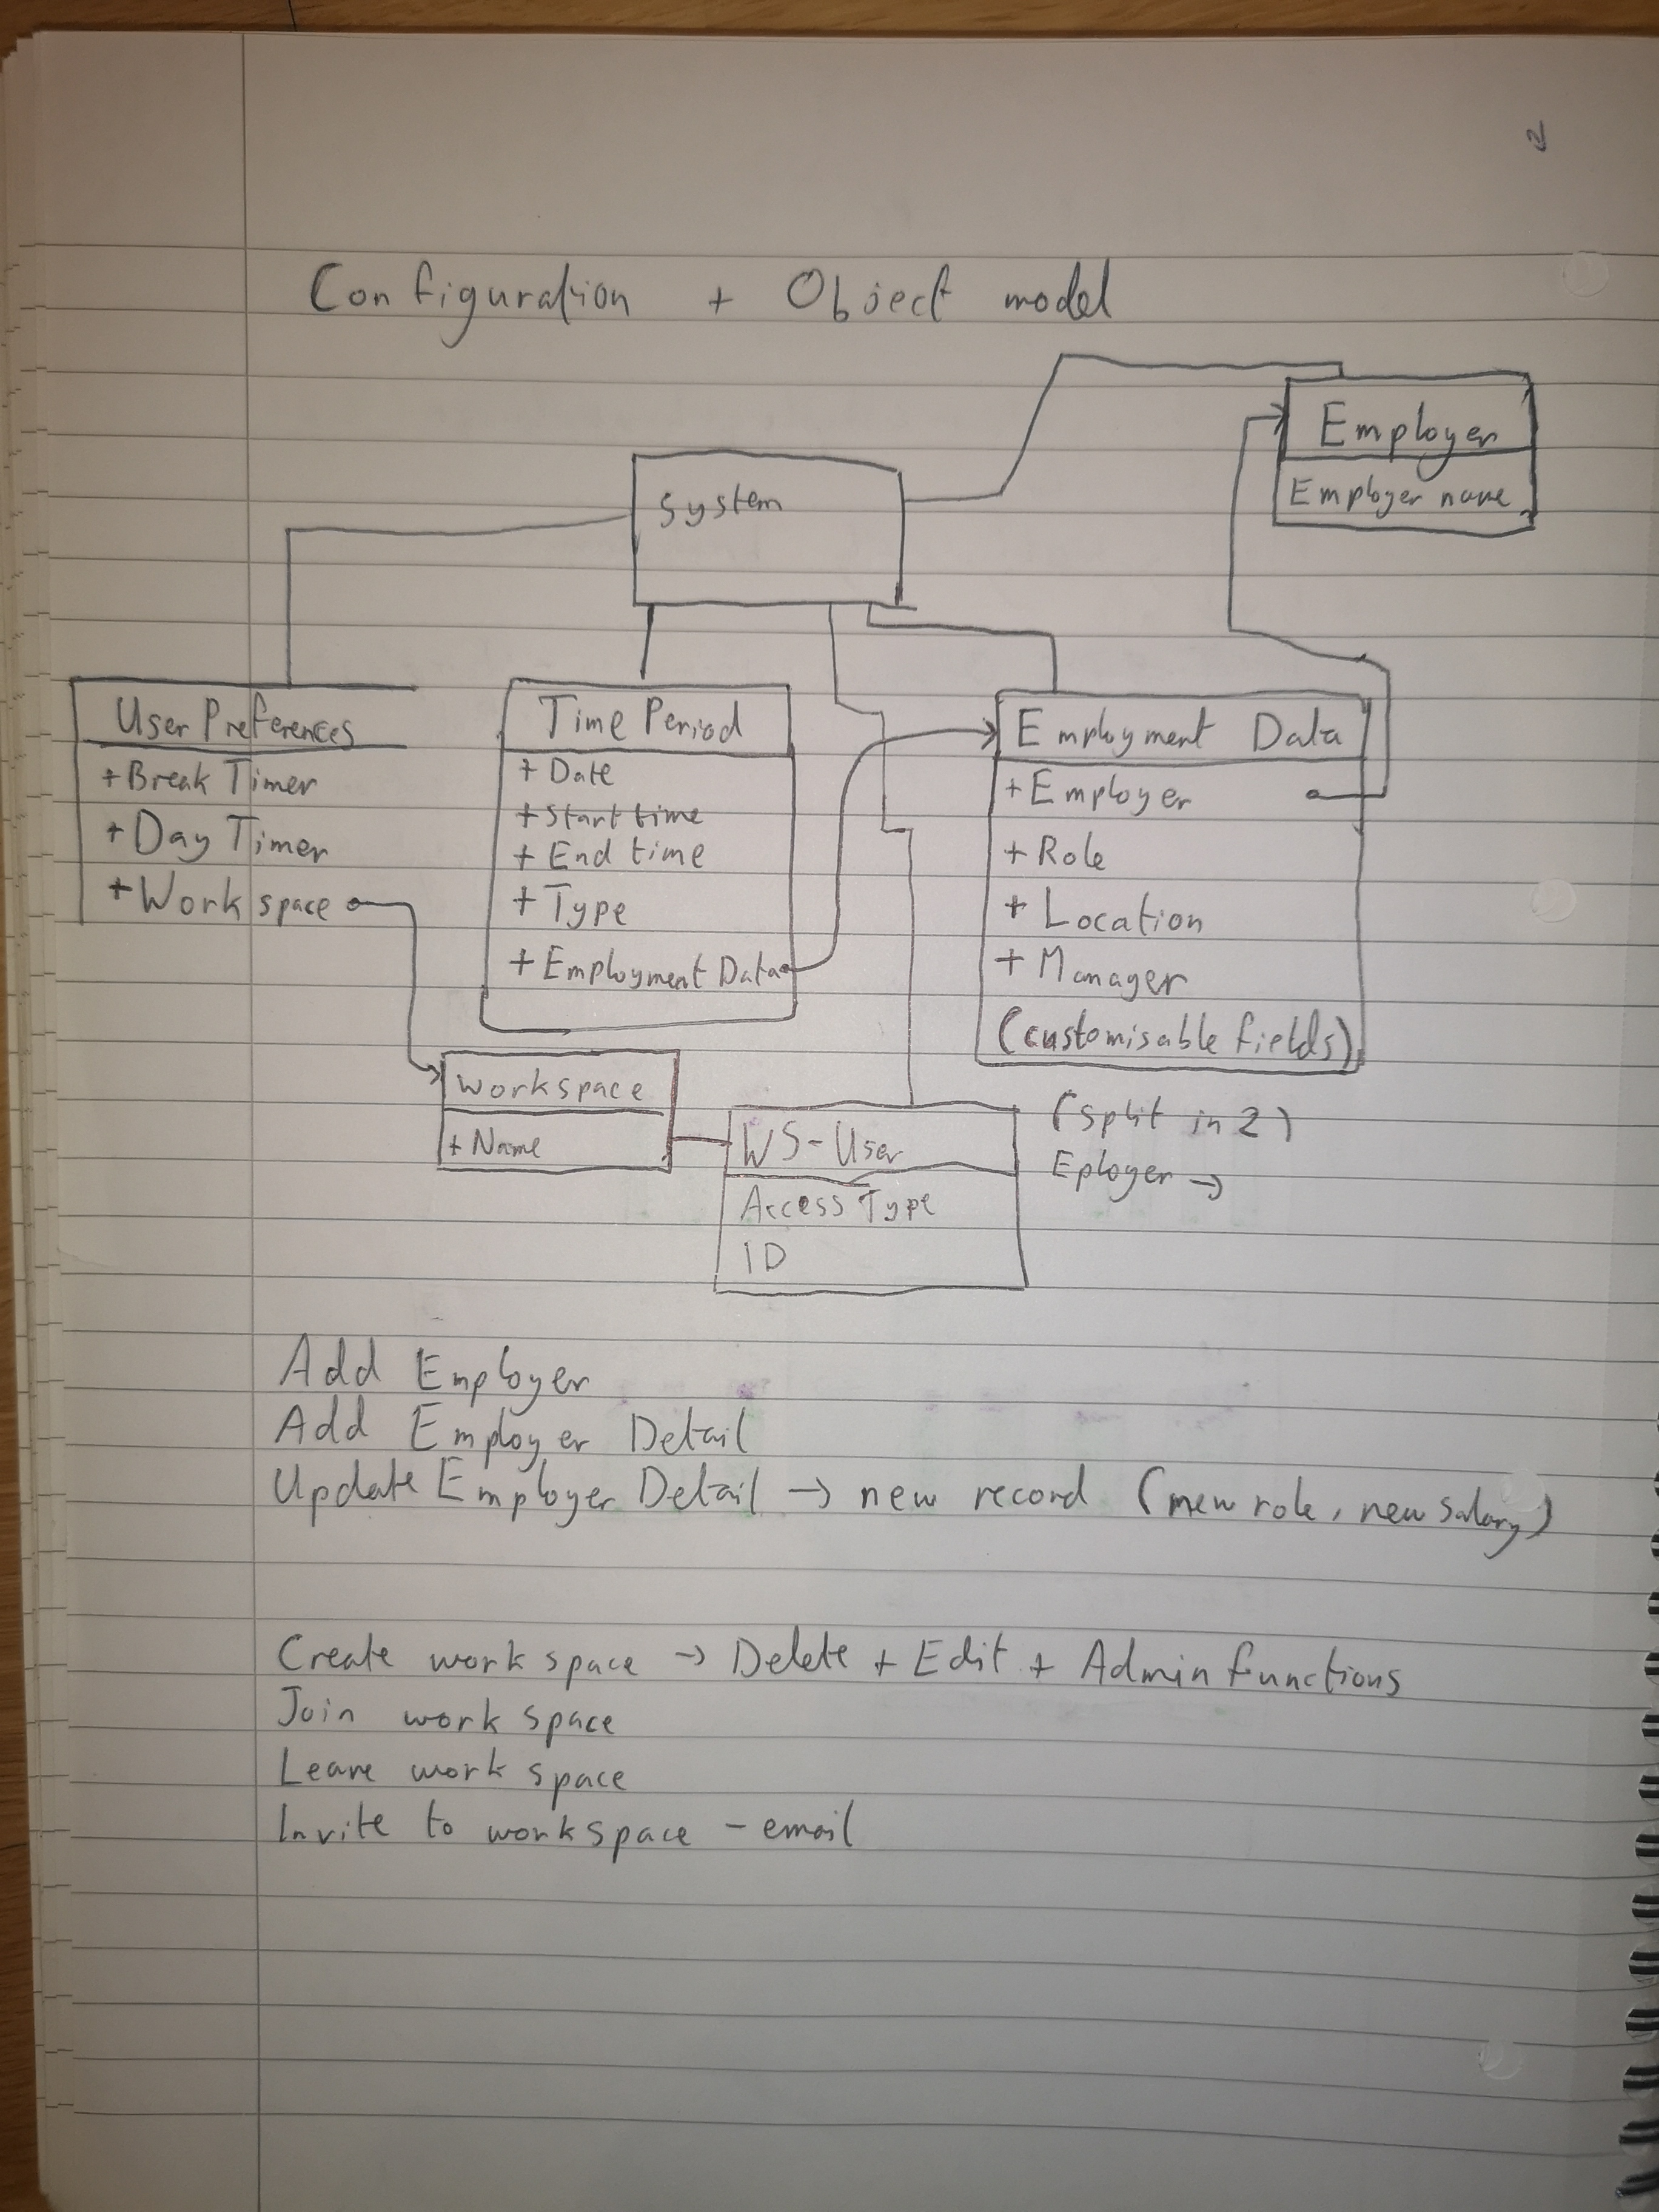 2
Configuration + Object model
Employer
Employer name
System
User Preferences
+Break Timer
+Day Timer
+Workspace
Time Period
+ Date
+ Start time
+ End time
+ Type
+ Employment Data
Employment Data
+ Employer
+ Role
+ Location
+ Manager
(customisable fields)
Workspace
+ Name
WS-User
Access Type
ID
(split in 2)
Eployer →
Add Employer
Add Employer Detail
Update Employer Detail → new record (new role, new salary)
Create workspace → Delete + Edit + Admin functions
Join workspace
Leave workspace
Invite to workspace - email